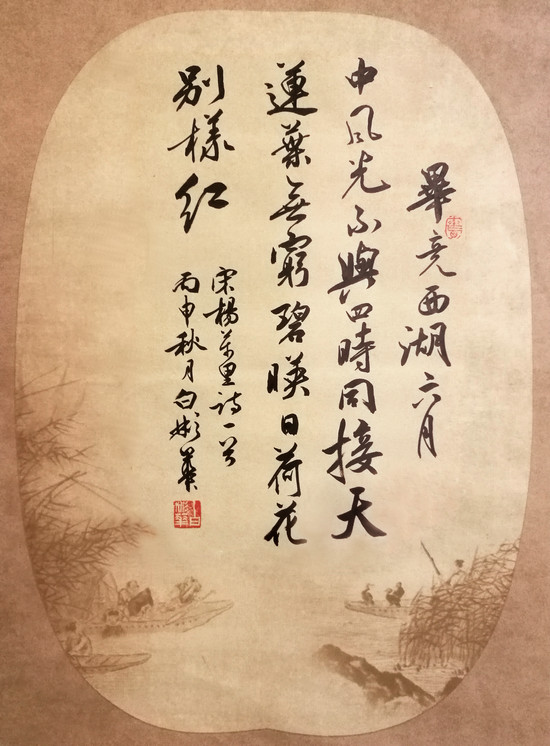 畢竟西湖六月
中風光不與四時同接天
蓮葉無窮碧暎日荷花
別樣紅
宋楊萬里詩一首
丙申秋月白彬華